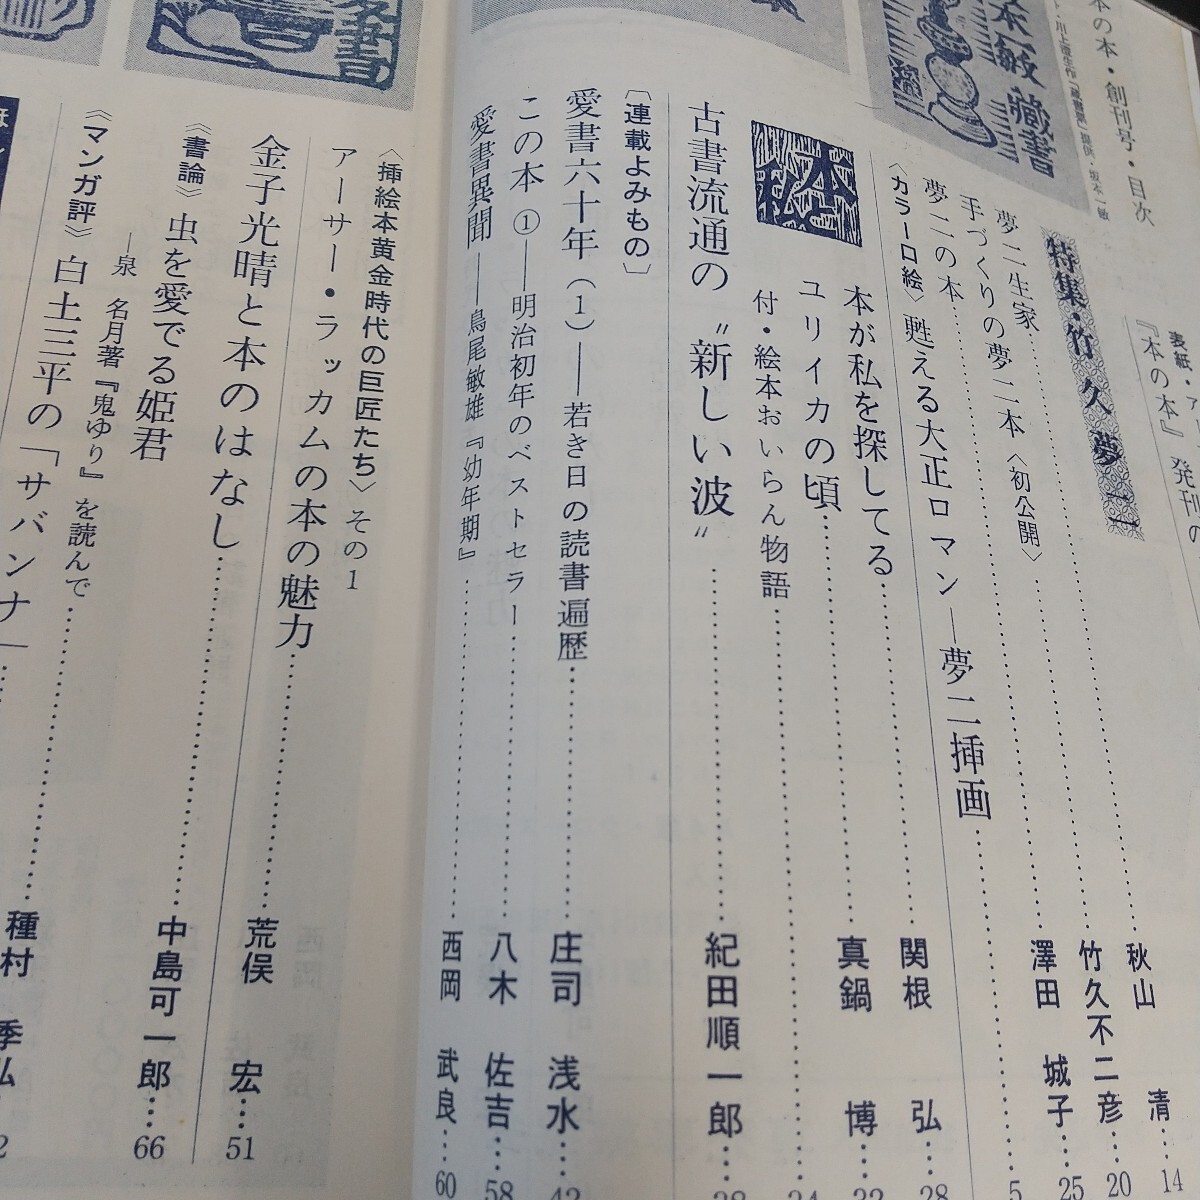 本の本・創刊号・目次
『本の本』発刊の
特集・竹久夢二
夢二生家……秋山 清…14
手づくりの夢二本〈初公開〉……竹久不二彦…20
夢二の本……澤田 城子…25
〈カラー口絵〉甦える大正ロマン―夢二挿画……5
本が私を探してる……関根 弘…28
ユリイカの頃……真鍋 博…32
付・絵本おいらん物語……
古書流通の〝新しい波〟……紀田順一郎…
〔連載よみもの〕
愛書六十年(1)――若き日の読書遍歴……庄司 浅水…42
この本①――明治初年のベストセラー……八木 佐吉…58
愛書異聞――鳥尾敏雄『幼年期』……西岡 武良…60
〈挿絵本黄金時代の巨匠たち〉その1
アーサー・ラッカムの本の魅力……荒俣 宏…51
金子光晴と本のはなし……中島可一郎…66
〈書論〉虫を愛でる姫君
―泉 名月著『鬼ゆり』を読んで……種村 季弘…
〈マンガ評〉白土三平の「サバンナ」…